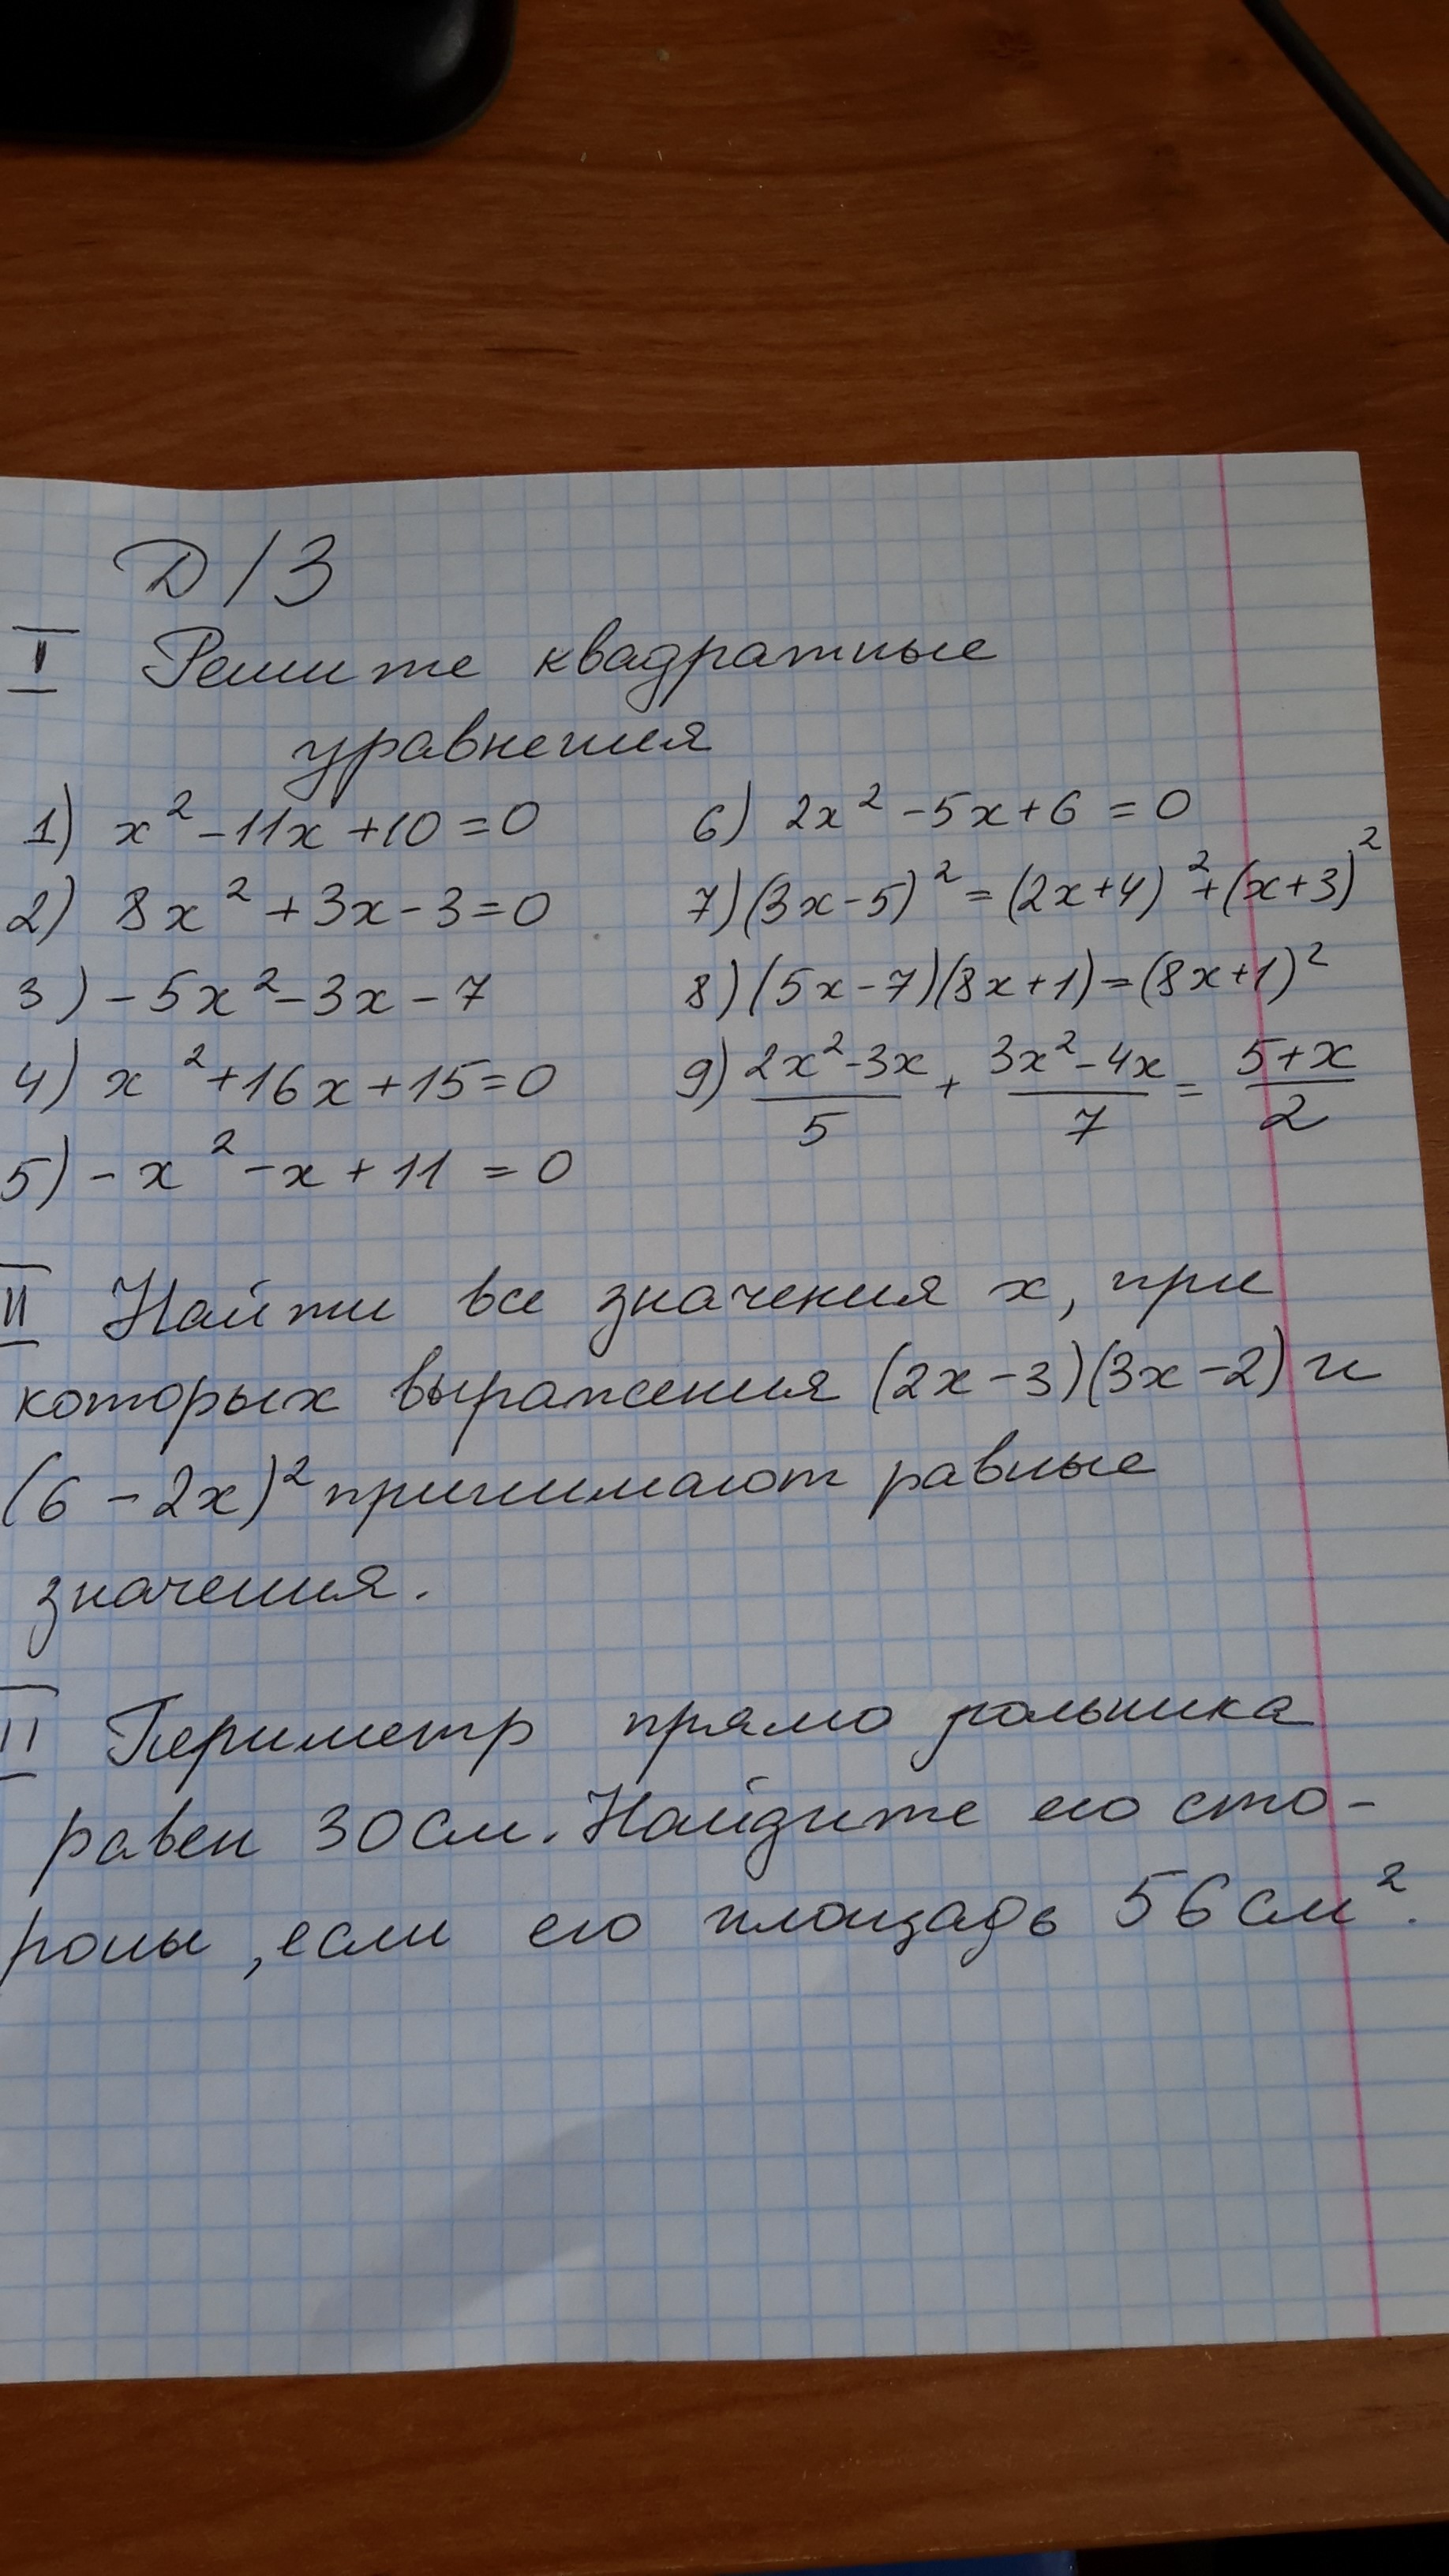 Д/З
I Решите квадратные
уравнения
1) x² - 11x + 10 = 0
2) 8x² + 3x - 3 = 0
3) - 5x² - 3x - 7
4) x² + 16x + 15 = 0
5) - x² - x + 11 = 0
6) 2x² - 5x + 6 = 0
7) (3x - 5)² = (2x + 4)² + (x + 3)²
8) (5x - 7)(8x + 1) = (8x + 1)²
9) (2x² - 3x)/5 + (3x² - 4x)/7 = (5 + x)/2
II Найти все значения x, при
которых выражения (2x - 3)(3x - 2) и
(6 - 2x)² принимают равные
значения.
II Периметр прямоугольника
равен 30 см. Найдите его сто-
роны, если его площадь 56 см².